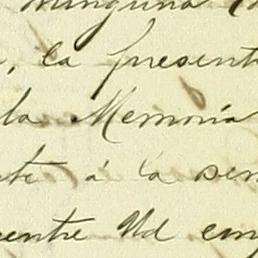 ninguna
, la present
la Memoria
te á la sem
entre Ud em